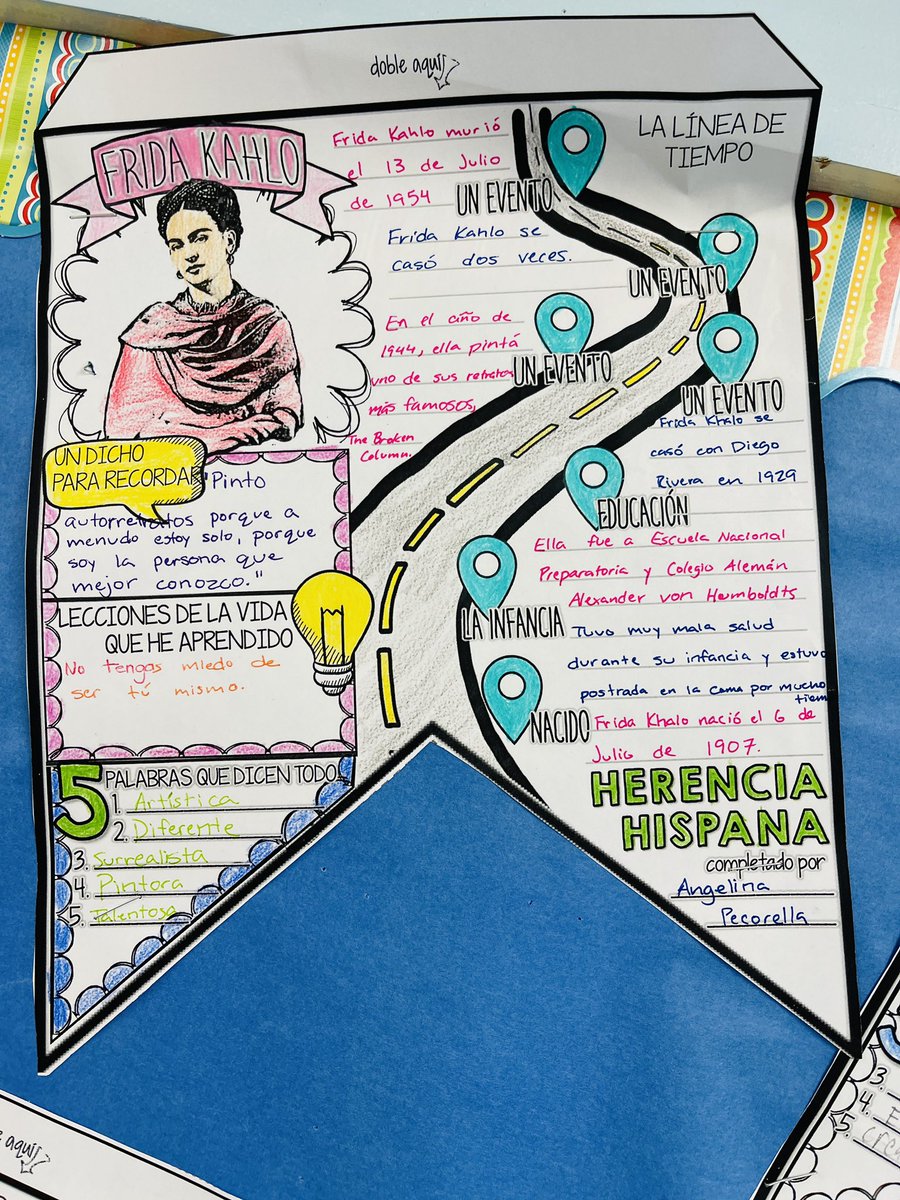 doble aquí
FRIDA KAHLO
LA LÍNEA DE
TIEMPO
Frida Kahlo murió
el 13 de Julio
de 1954
UN EVENTO
Frida Kahlo se
casó dos veces.
UN EVENTO
En el año de
1944, ella pintá
uno de sus retratos
más famosos,
The Broken
Column.
UN EVENTO
UN EVENTO
Frida Khalo se
casó con Diego
Rivera en 1929
EDUCACIÓN
Ella fue a Escuela Nacional
Preparatoria y Colegio Alemán
Alexander von Humboldts
LA INFANCIA
Tuvo muy mala salud
durante su infancia y estuvo
postrada en la cama por mucho
tiem
NACIDO
Frida Khalo nació el 6 de
Julio de 1907.
UN DICHO
PARA RECORDAR
"Pinto
autorretratos porque a
menudo estoy solo, porque
soy la persona que
mejor conozco."
LECCIONES DE LA VIDA
QUE HE APRENDIDO
No tengas miedo de
ser tú mismo.
5 PALABRAS QUE DICEN TODO
1. Artística
2. Diferente
3. Surrealista
4. Pintora
5. Talentosa
HERENCIA
HISPANA
completado por
Angelina
Pecorella
aquí
3.
4.
5.